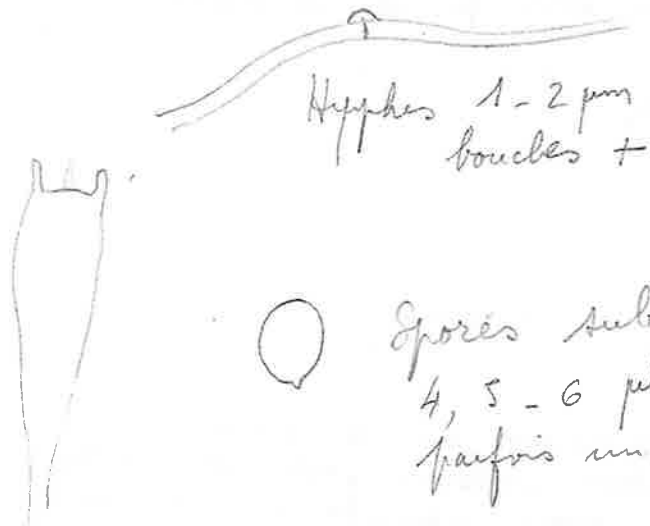 Hyphes 1-2 µm
boucles +
Spores sub
4,5-6 µ
parfois un